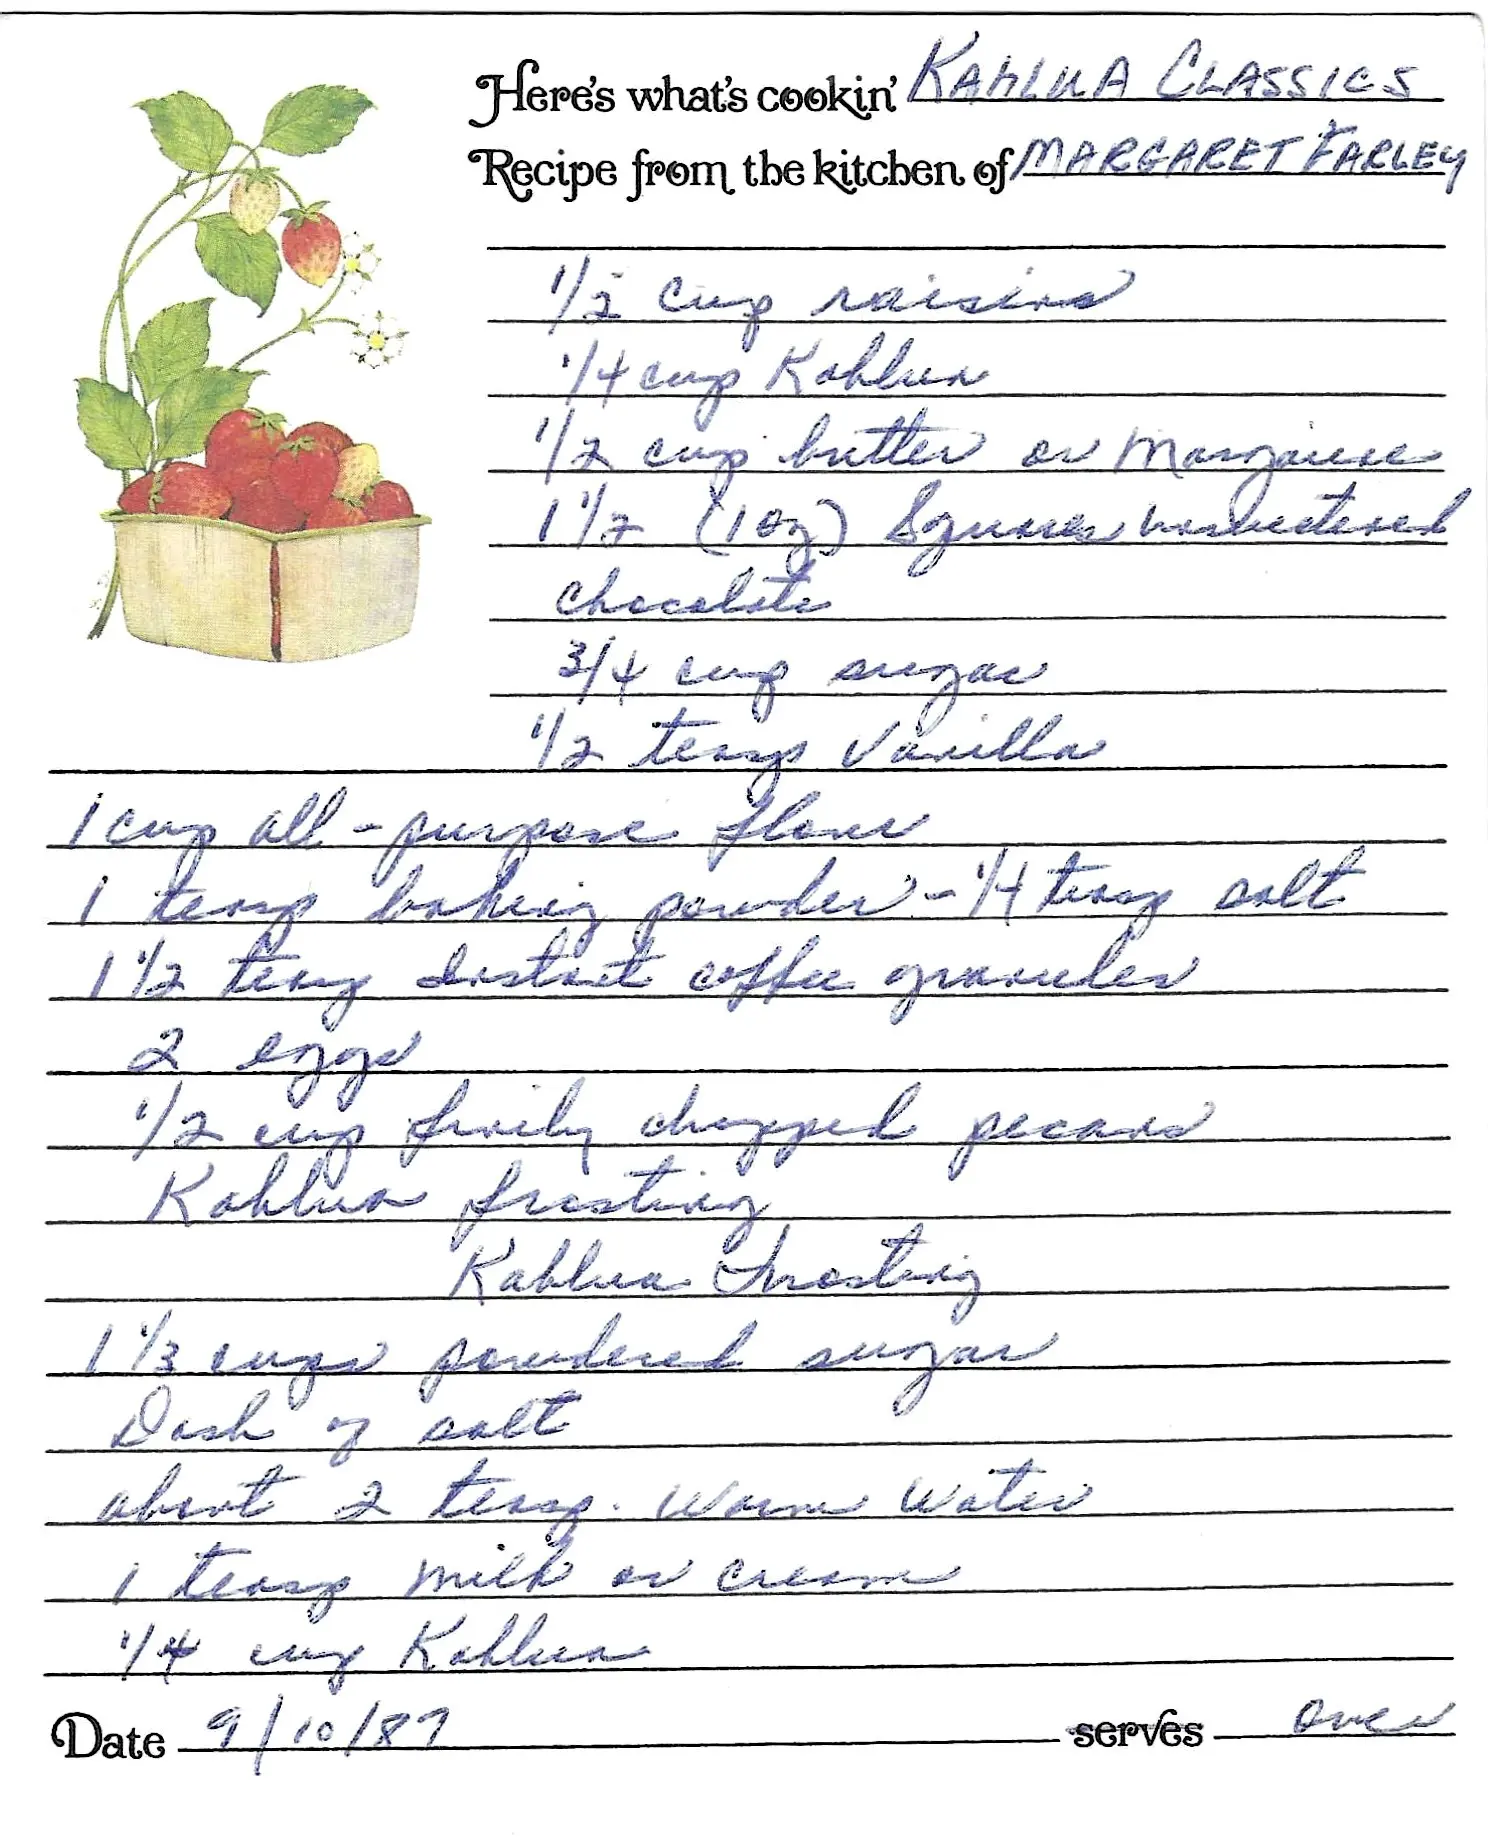 Here's what's cookin' KAHLUA CLASSICS
Recipe from the kitchen of MARGARET FARLEY
1/2 cup raisins
1/4 cup Kahlua
1/2 cup butter or Margarine
1 1/2 (1 oz) Squares unsweetened
chocolate
3/4 cup sugar
1/2 teasp Vanilla
1 cup all-purpose flour
1 teasp baking powder - 1/4 teasp salt
1 1/2 teasp instant coffee granules
2 eggs
1/2 cup finely chopped pecans
Kahlua frosting
Kahlua Frosting
1 1/3 cups powdered sugar
Dash of salt
about 2 teasp. Warm Water
1 teasp milk or cream
1/4 cup Kahlua
Date 9/10/87 serves over